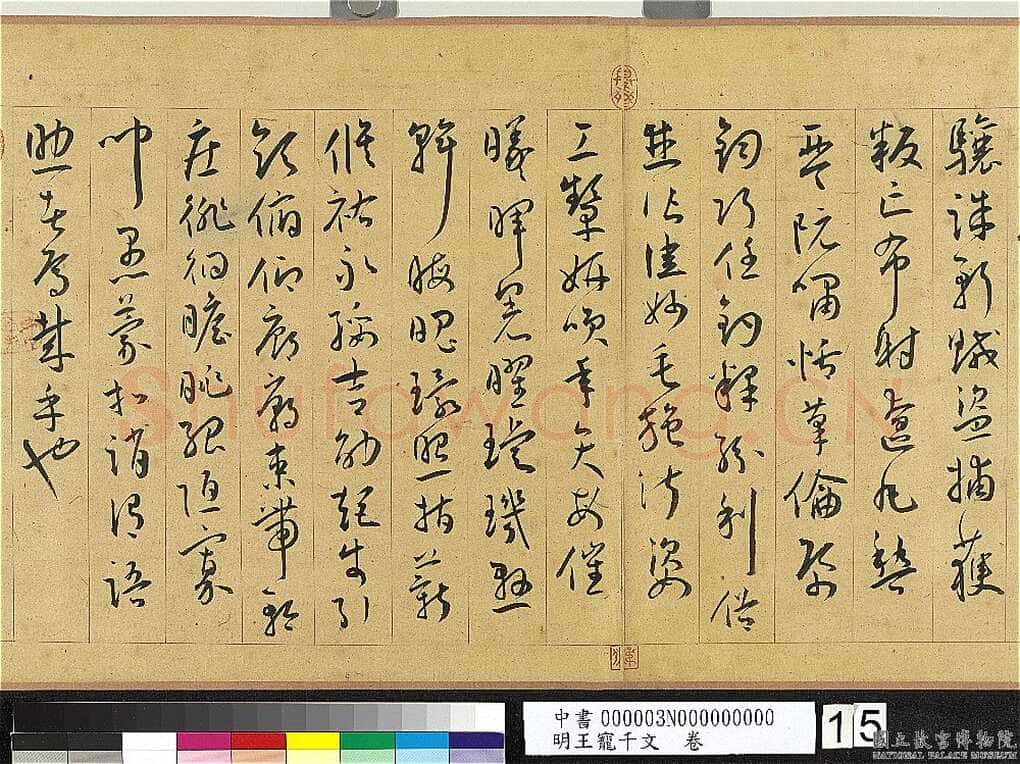 驤誅斬賊盜捕獲
叛亡布射遼丸嵇
琴阮嘯恬筆倫紙
鈞巧任釣釋紛利俗
並皆佳妙毛施淑姿
工顰妍笑年矢每催
曦暉朗曜璇璣懸
斡晦魄環照指薪
修祜永綏吉劭矩步引
領俯仰廊廟束帶矜
莊徘徊瞻眺孤陋寡
聞愚蒙等誚謂語
助者焉哉乎也
Shufawang.CN
中書 000003N000000000
明王寵千文 卷
15
國立故宮博物院
NATIONAL PALACE MUSEUM